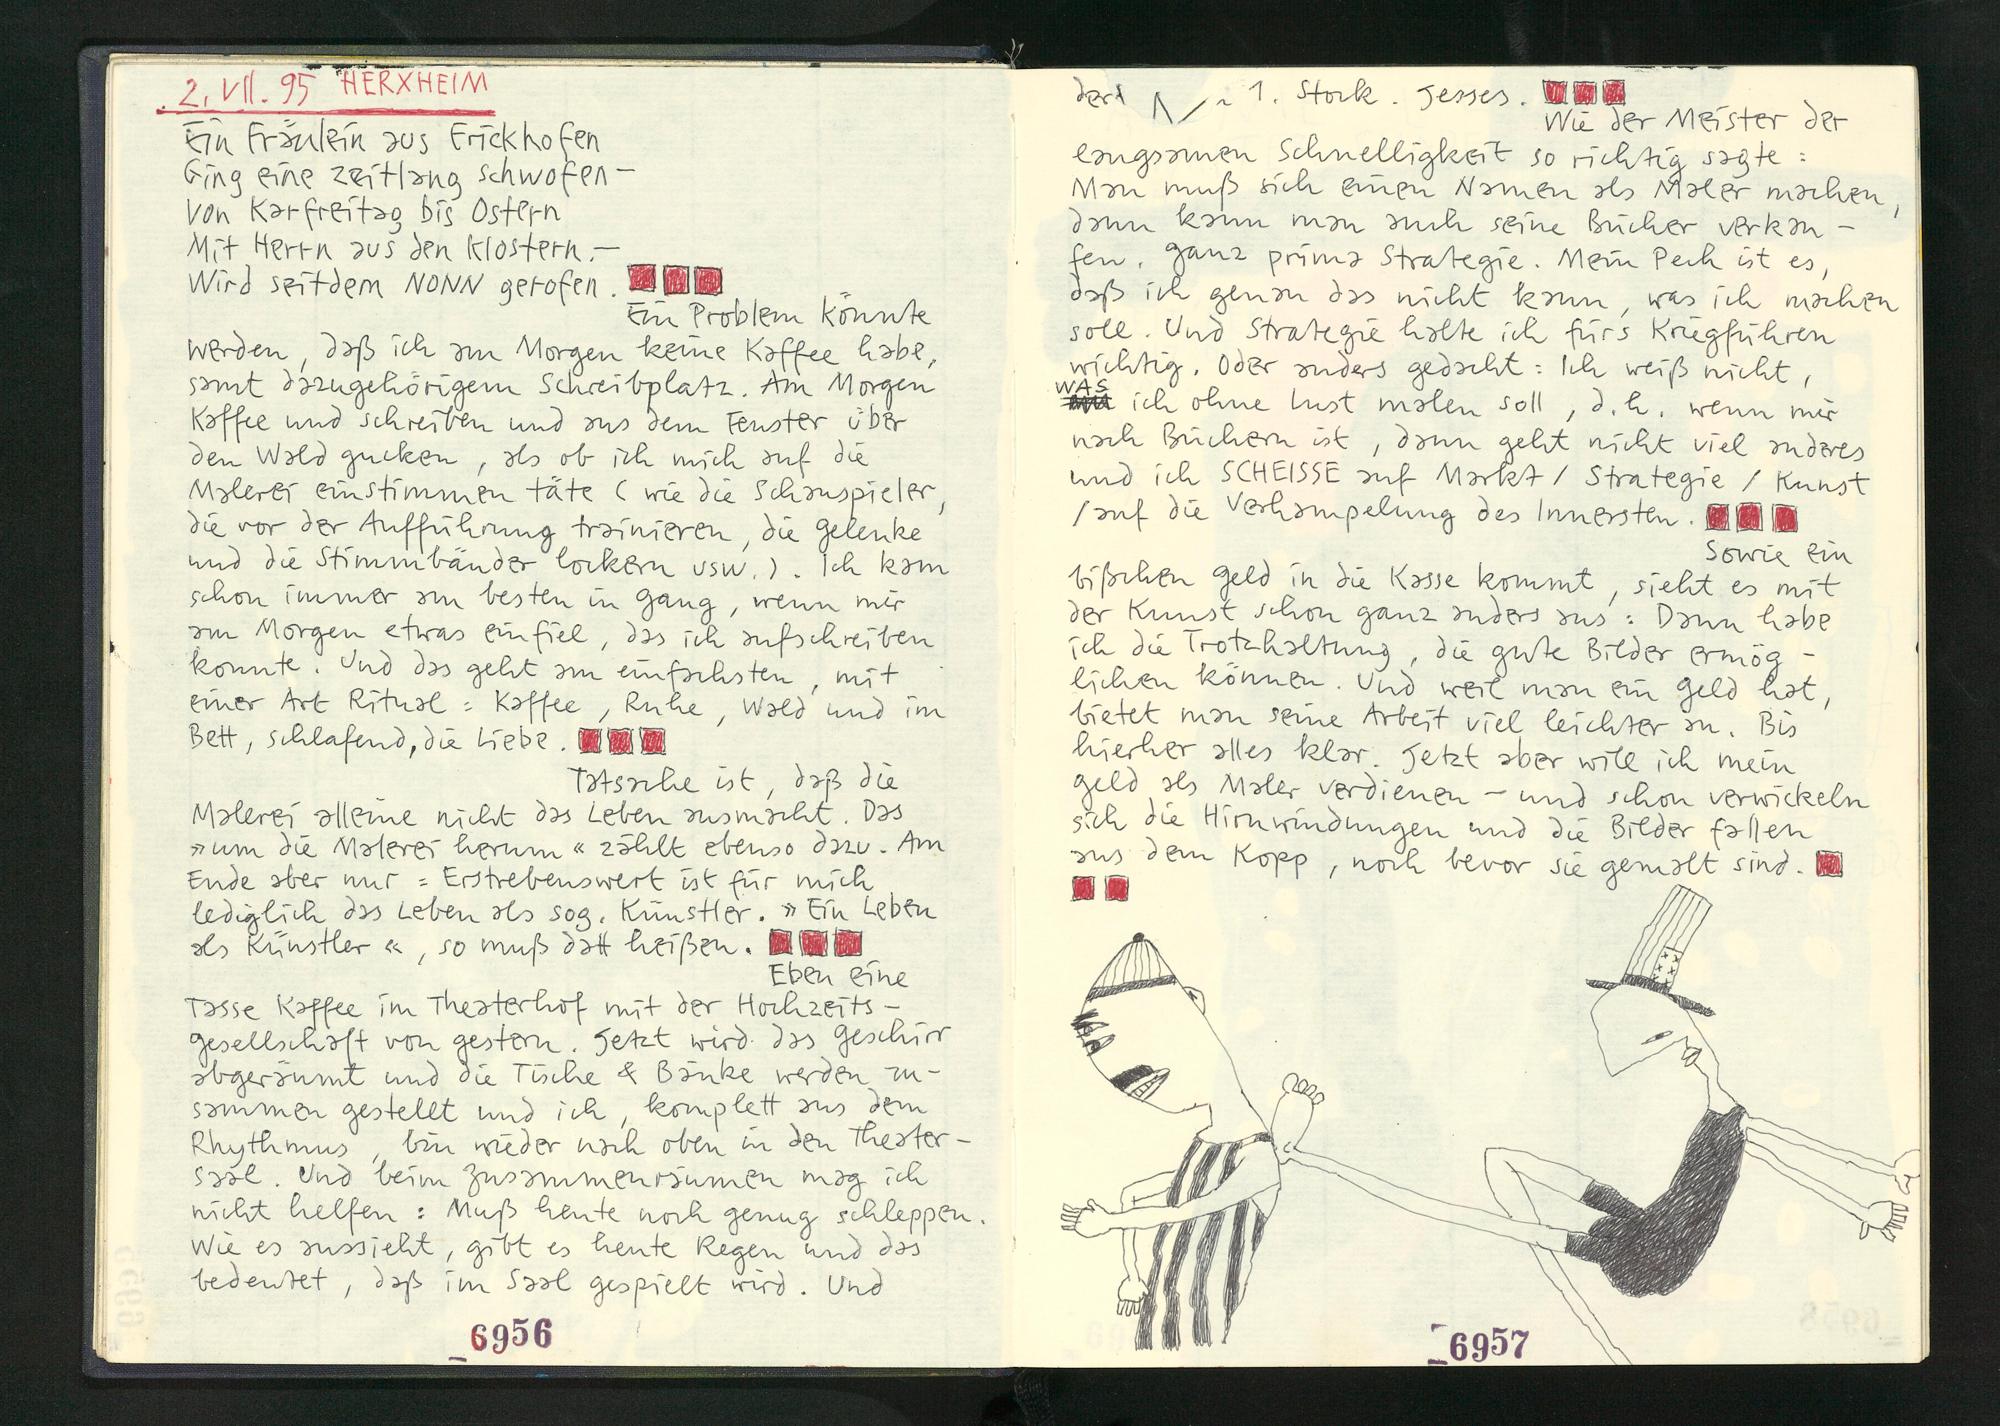 2. VII. 95 HERXHEIM
Ein Fräulein aus Erickhofen
Ging eine zeitlang schwofen –
Von Karfreitag bis Ostern
Mit Herrn aus den Klostern. –
Wird seitdem NONN gerofen.
Ein Problem könnte
werden, daß ich am Morgen keine Kaffee habe,
samt dazugehörigem Schreibplatz. Am Morgen
Kaffee und schreiben und aus dem Fenster über
den Wald gucken, als ob ich mich auf die
Malerei einstimmen täte (wie die Schauspieler,
die vor der Aufführung trainieren, die Gelenke
und die Stimmbänder lockern usw.). Ich kam
schon immer am besten in Gang, wenn mir
am Morgen etwas einfiel, das ich aufschreiben
konnte. Und das geht am einfachsten, mit
einer Art Ritual = Kaffee, Ruhe, Wald und im
Bett, schlafend, die Liebe.
Tatsache ist, daß die
Malerei alleine nicht das Leben ausmacht. Das
»um die Malerei herum« zählt ebenso dazu. Am
Ende aber nur = Erstrebenswert ist für mich
lediglich das Leben als sog. Künstler. »Ein Leben
als Künstler«, so muß datt heißen.
Eben eine
Tasse Kaffee im Theaterhof mit der Hochzeits-
gesellschaft von gestern. Jetzt wird das Geschirr
abgeräumt und die Tische & Bänke werden zu-
sammen gestellt und ich, komplett aus dem
Rhythmus, bin wieder nach oben in den Theater-
saal. Und beim Zusammenräumen mag ich
nicht helfen: Muß heute noch genug schleppen.
Wie es aussieht, gibt es heute Regen und das
bedeutet, daß im Saal gespielt wird. Und
6956
1. Stock. Jesses.
Wie der Meister der
langsamen Schnelligkeit so richtig sagte:
Man muß sich einen Namen als Maler machen,
dann kann man auch seine Bücher verkau-
fen. Ganz prima Strategie. Mein Pech ist es,
daß ich genau das nicht kann, was ich machen
soll. Und Strategie halte ich fürs Kriegführen
wichtig. Oder anders gedacht: Ich weiß nicht,
WAS ich ohne Lust malen soll, d.h. wenn mir
nach Büchern ist, dann geht nicht viel anderes
und ich SCHEISSE auf Markt / Strategie / Kunst
/ auf die Verhampelung des Innersten.
Sowie ein
bißchen Geld in die Kasse kommt, sieht es mit
der Kunst schon ganz anders aus: Dann habe
ich die Trotzhaltung, die gute Bilder ermög-
lichen können. Und weil man ein Geld hat,
bietet man seine Arbeit viel leichter an. Bis
hierher alles klar. Jetzt aber will ich mein
Geld als Maler verdienen – und schon verwickeln
sich die Hirnwindungen und die Bilder fallen
aus dem Kopp, noch bevor sie gemalt sind.
6957